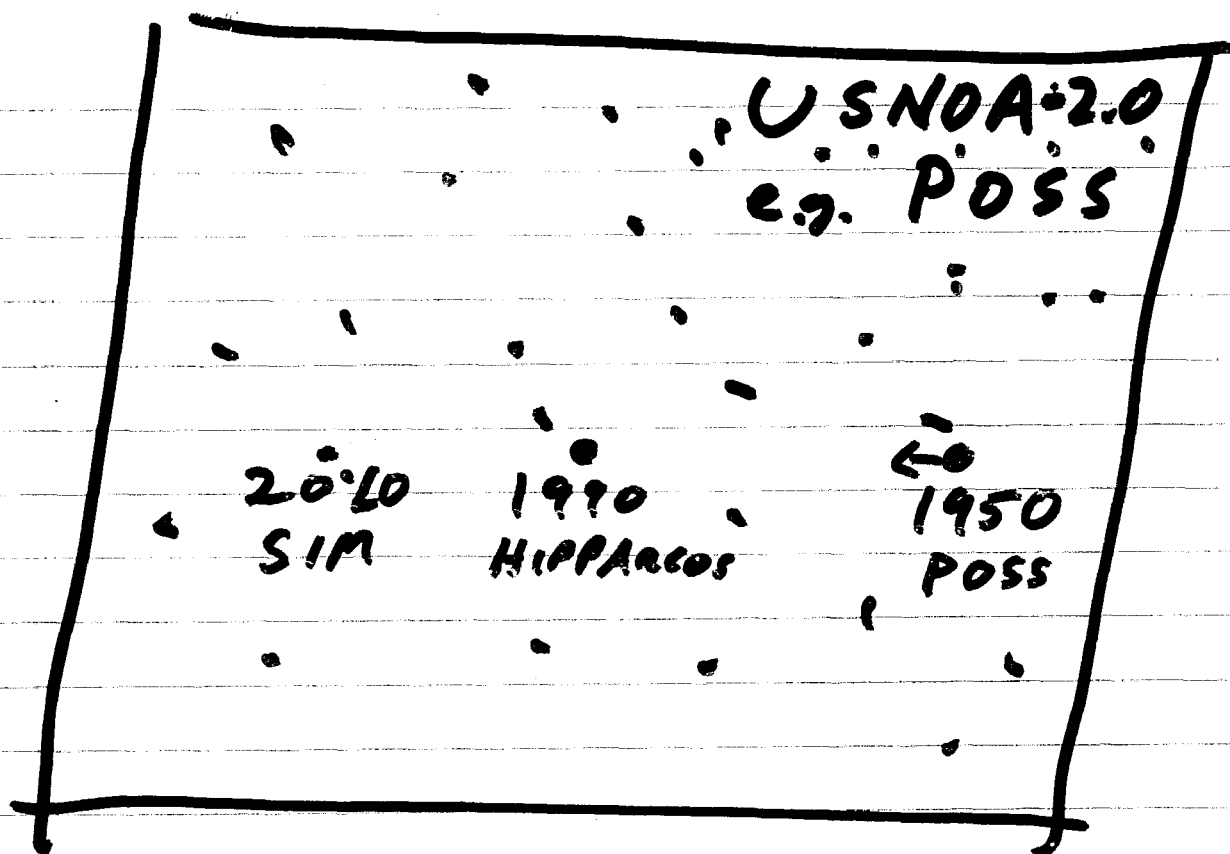 USNOA-2.0
e.g. POSS
2010
SIM
1990
HIPPARCOS
1950
POSS